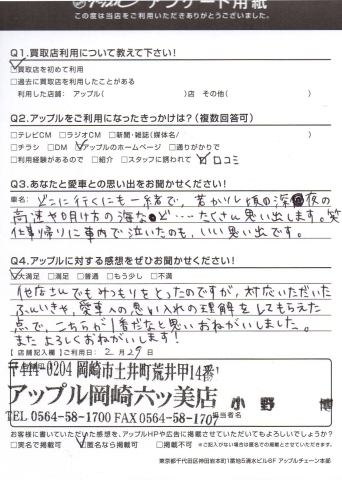 アンケート用紙
この度は当店をご利用いただきありがとうございました。
Q1.買取店利用について教えて下さい!
☑買取店を初めて利用
□過去に買取店を利用したことがある
利用した店舗: アップル( )店 その他( )
Q2.アップルをご利用になったきっかけは?(複数回答可)
□テレビCM □ラジオCM □新聞・雑誌(媒体名/ )
□チラシ □DM ☑アップルのホームページ □通りがかりで
□利用経験があるので □紹介 □スタッフに誘われて ☑口コミ
Q3.あなたと愛車との思い出をお聞かせください!
車名: どこに行くにも一緒で、若かりし頃の深夜の
高速や明け方の海など…たくさん思い出します。笑
仕事帰りに車内で泣いたのも、いい思い出です。
Q4.アップルに対する感想をぜひお聞かせください!
☑大満足 □満足 □普通 □もう少し □不満
他店さんでもみつもりをとったのですが、対応いただいた
ふんいきや、愛車への思い入れの理解をしてもらえた
点で、こちらが1番だなと思いおねがいしました。
またよろしくおねがいします!
【店舗記入欄】ご利用日: 2月29日
〒444-0204 岡崎市土井町荒井甲14番1
アップル岡崎六ッ美店
TEL 0564-58-1700 FAX 0564-58-1707
担当者名 小野 博
お客様に書いていただいた感想を、アップルHPや広告に掲載させていただいてもよろしいでしょうか?
□実名で掲載可 ☑匿名なら掲載可 □掲載不可 ※ご記入がない場合は匿名での掲載とさせていただきます。
東京都千代田区神田岩本町1番地5清水ビル6F アップルチェーン本部